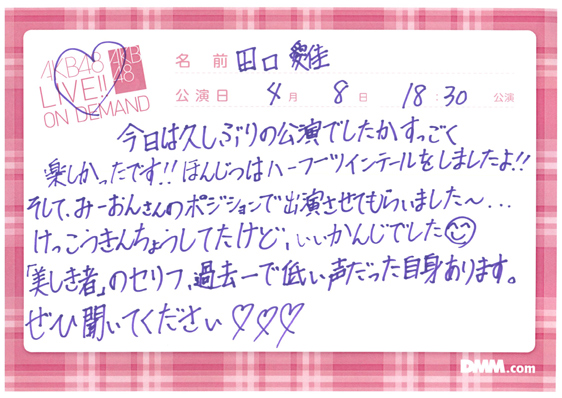 AKB48
LIVE!!
ON DEMAND
AKB
48
名前 田口 愛佳
公演日 4月 8日 18:30 公演
今日は久しぶりの公演でしたがすっごく
楽しかったです!! ほんじつはハーフーツインテールをしましたよ!!
そして、みーおんさんのポジションで出演させてもらいました〜...
けっこうきんちょうしてたけど、いいかんじでした
「美しき者」のセリフ、過去一で低い声だった自身あります。
ぜひ聞いてください♡♡♡
DMM.com